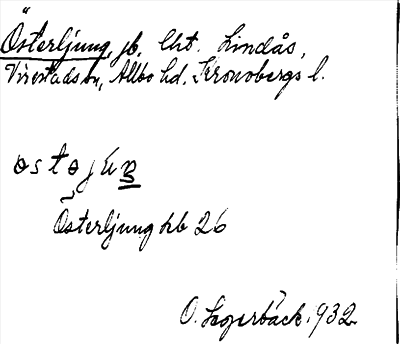 Österljung, jb. Cht. Lindås,
Virestads sn, Allbo hd. Kronobergs l.
Österljung hb 26
O. Lagerbäck. 1932